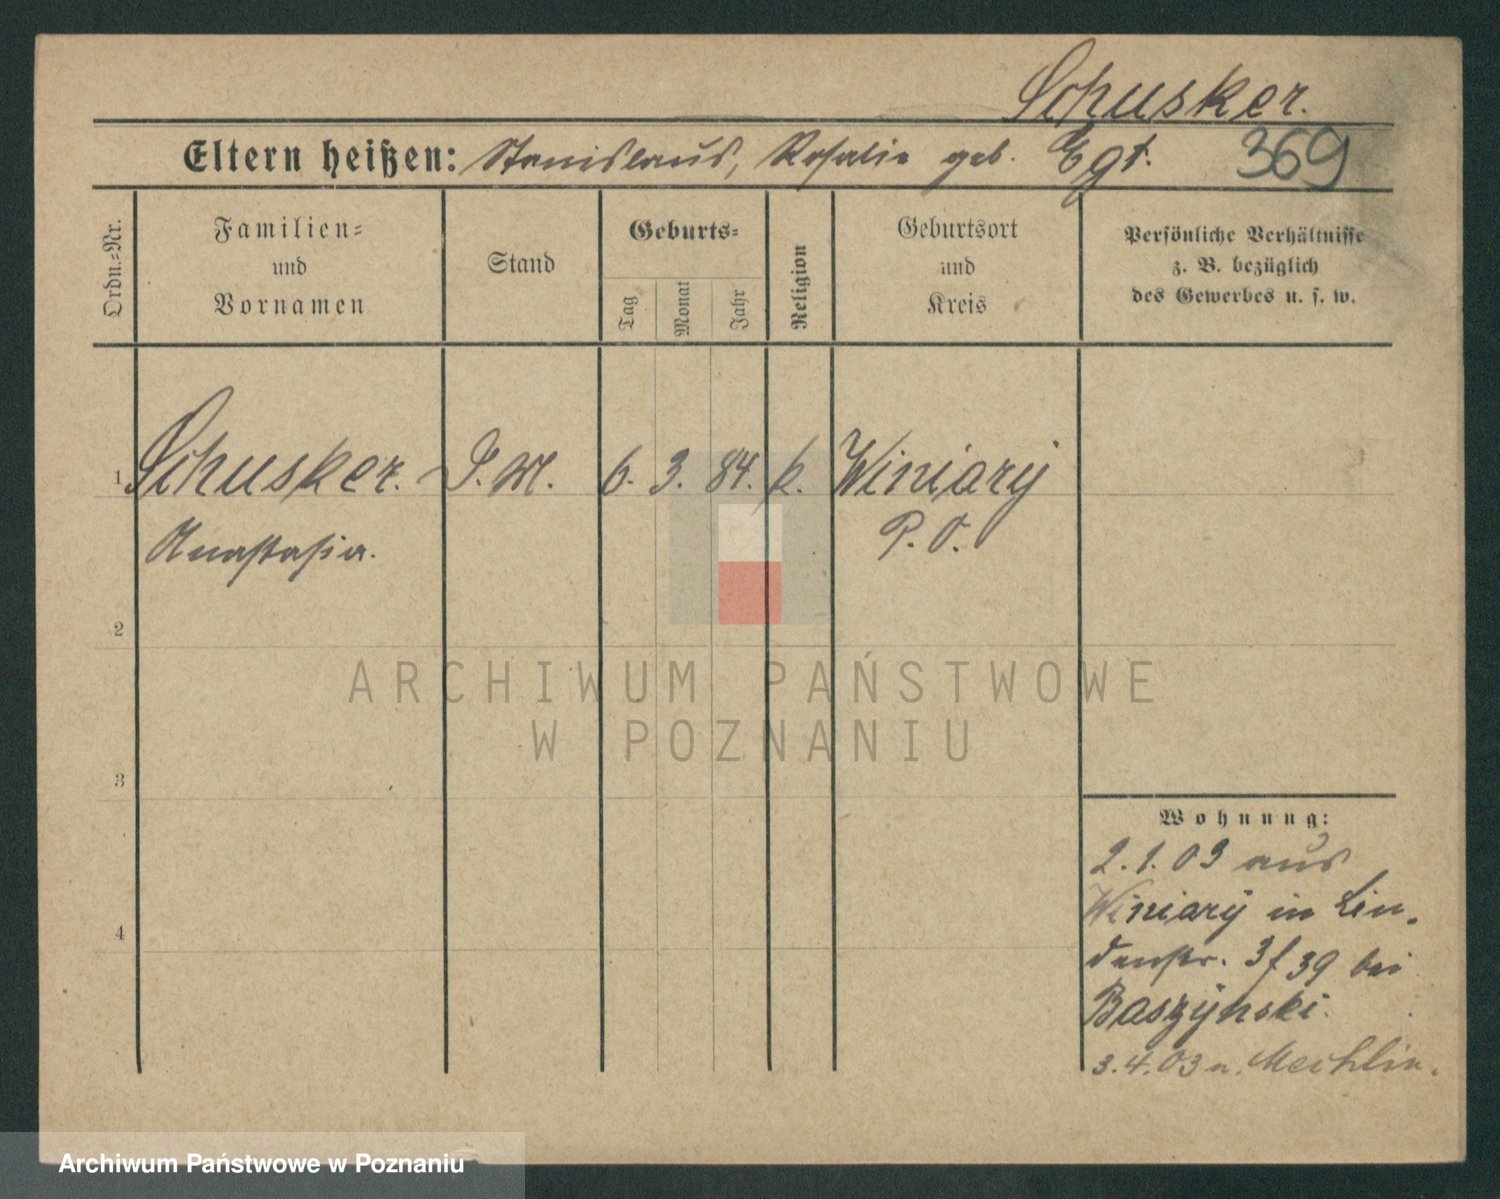 Schusker.
Eltern heißen: Stanislaus, Rosalie geb. Egt. 369
Ordn.-Nr.
Familien-
und
Vornamen
Stand
Geburts-
Tag
Monat
Jahr
Religion
Geburtsort
und
Kreis
Persönliche Verhältnisse
z. B. bezüglich
des Gewerbes u. s. w.
1 Schusker. D. M. 6. 3. 84. k. Winiary
Anastasia. P. O.
2
3
4
Wohnung:
2.1.03 aus
Winiary in Lin-
denstr. 3f 39 bei
Baszynski.
3.4.03 n. Mechlin.
ARCHIWUM PAŃSTWOWE
W POZNANIU
Archiwum Państwowe w Poznaniu